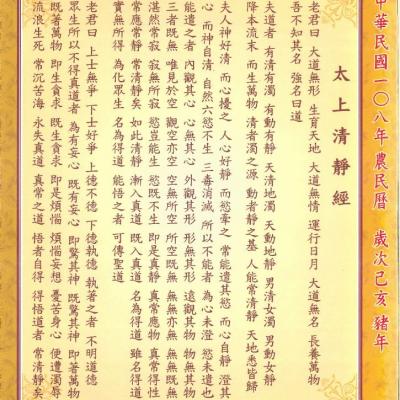 中華民國一○八年 農民曆 歲次己亥 豬年
太上清靜經
老君曰 大道無形 生育天地 大道無情 運行日月 大道無名 長養萬物
吾不知其名 強名曰道
夫道者 有清有濁 有動有靜 天清地濁 天動地靜 男清女濁 男動女靜
降本流末 而生萬物 清者濁之源 動者靜之基 人能常清靜 天地悉皆歸
夫人神好清 而心擾之 人心好靜 而慾牽之 常能遣其慾 而心自靜 澄其
心 而神自清 自然六慾不生 三毒消滅 所以不能者 為心未澄 慾未遣也
能遣之者 內觀其心 心無其心 外觀其形 形無其形 遠觀其物 物無其物
三者既無 唯見於空 觀空亦空 空無所空 所空既無 無無亦無 無無既無
湛然常寂 寂無所寂 慾豈能生 慾既不生 即是真靜 真常應物 真常得性
常應常靜 常清靜矣 如此清靜 漸入真道 既入真道 名為得道 雖名得道
實無所得 為化眾生 名為得道 能悟之者 可傳聖道
老君曰 上士無爭 下士好爭 上德不德 下德執德 執著之者 不明道德
眾生所以不得真道者 為有妄心 既有妄心 即驚其神 既驚其神 即著萬物
既著萬物 即生貪求 既生貪求 即是煩惱 煩惱妄想 憂苦身心 便遭濁辱
流浪生死 常沉苦海 永失真道 真常之道 悟者自得 得悟道者 常清靜矣